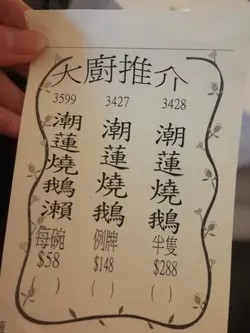 大廚推介
3599 3427 3428
潮蓮燒鵝瀨 潮蓮燒鵝 潮蓮燒鵝
每碗 例牌 半隻
$58 $148 $288
( ) ( ) ( )